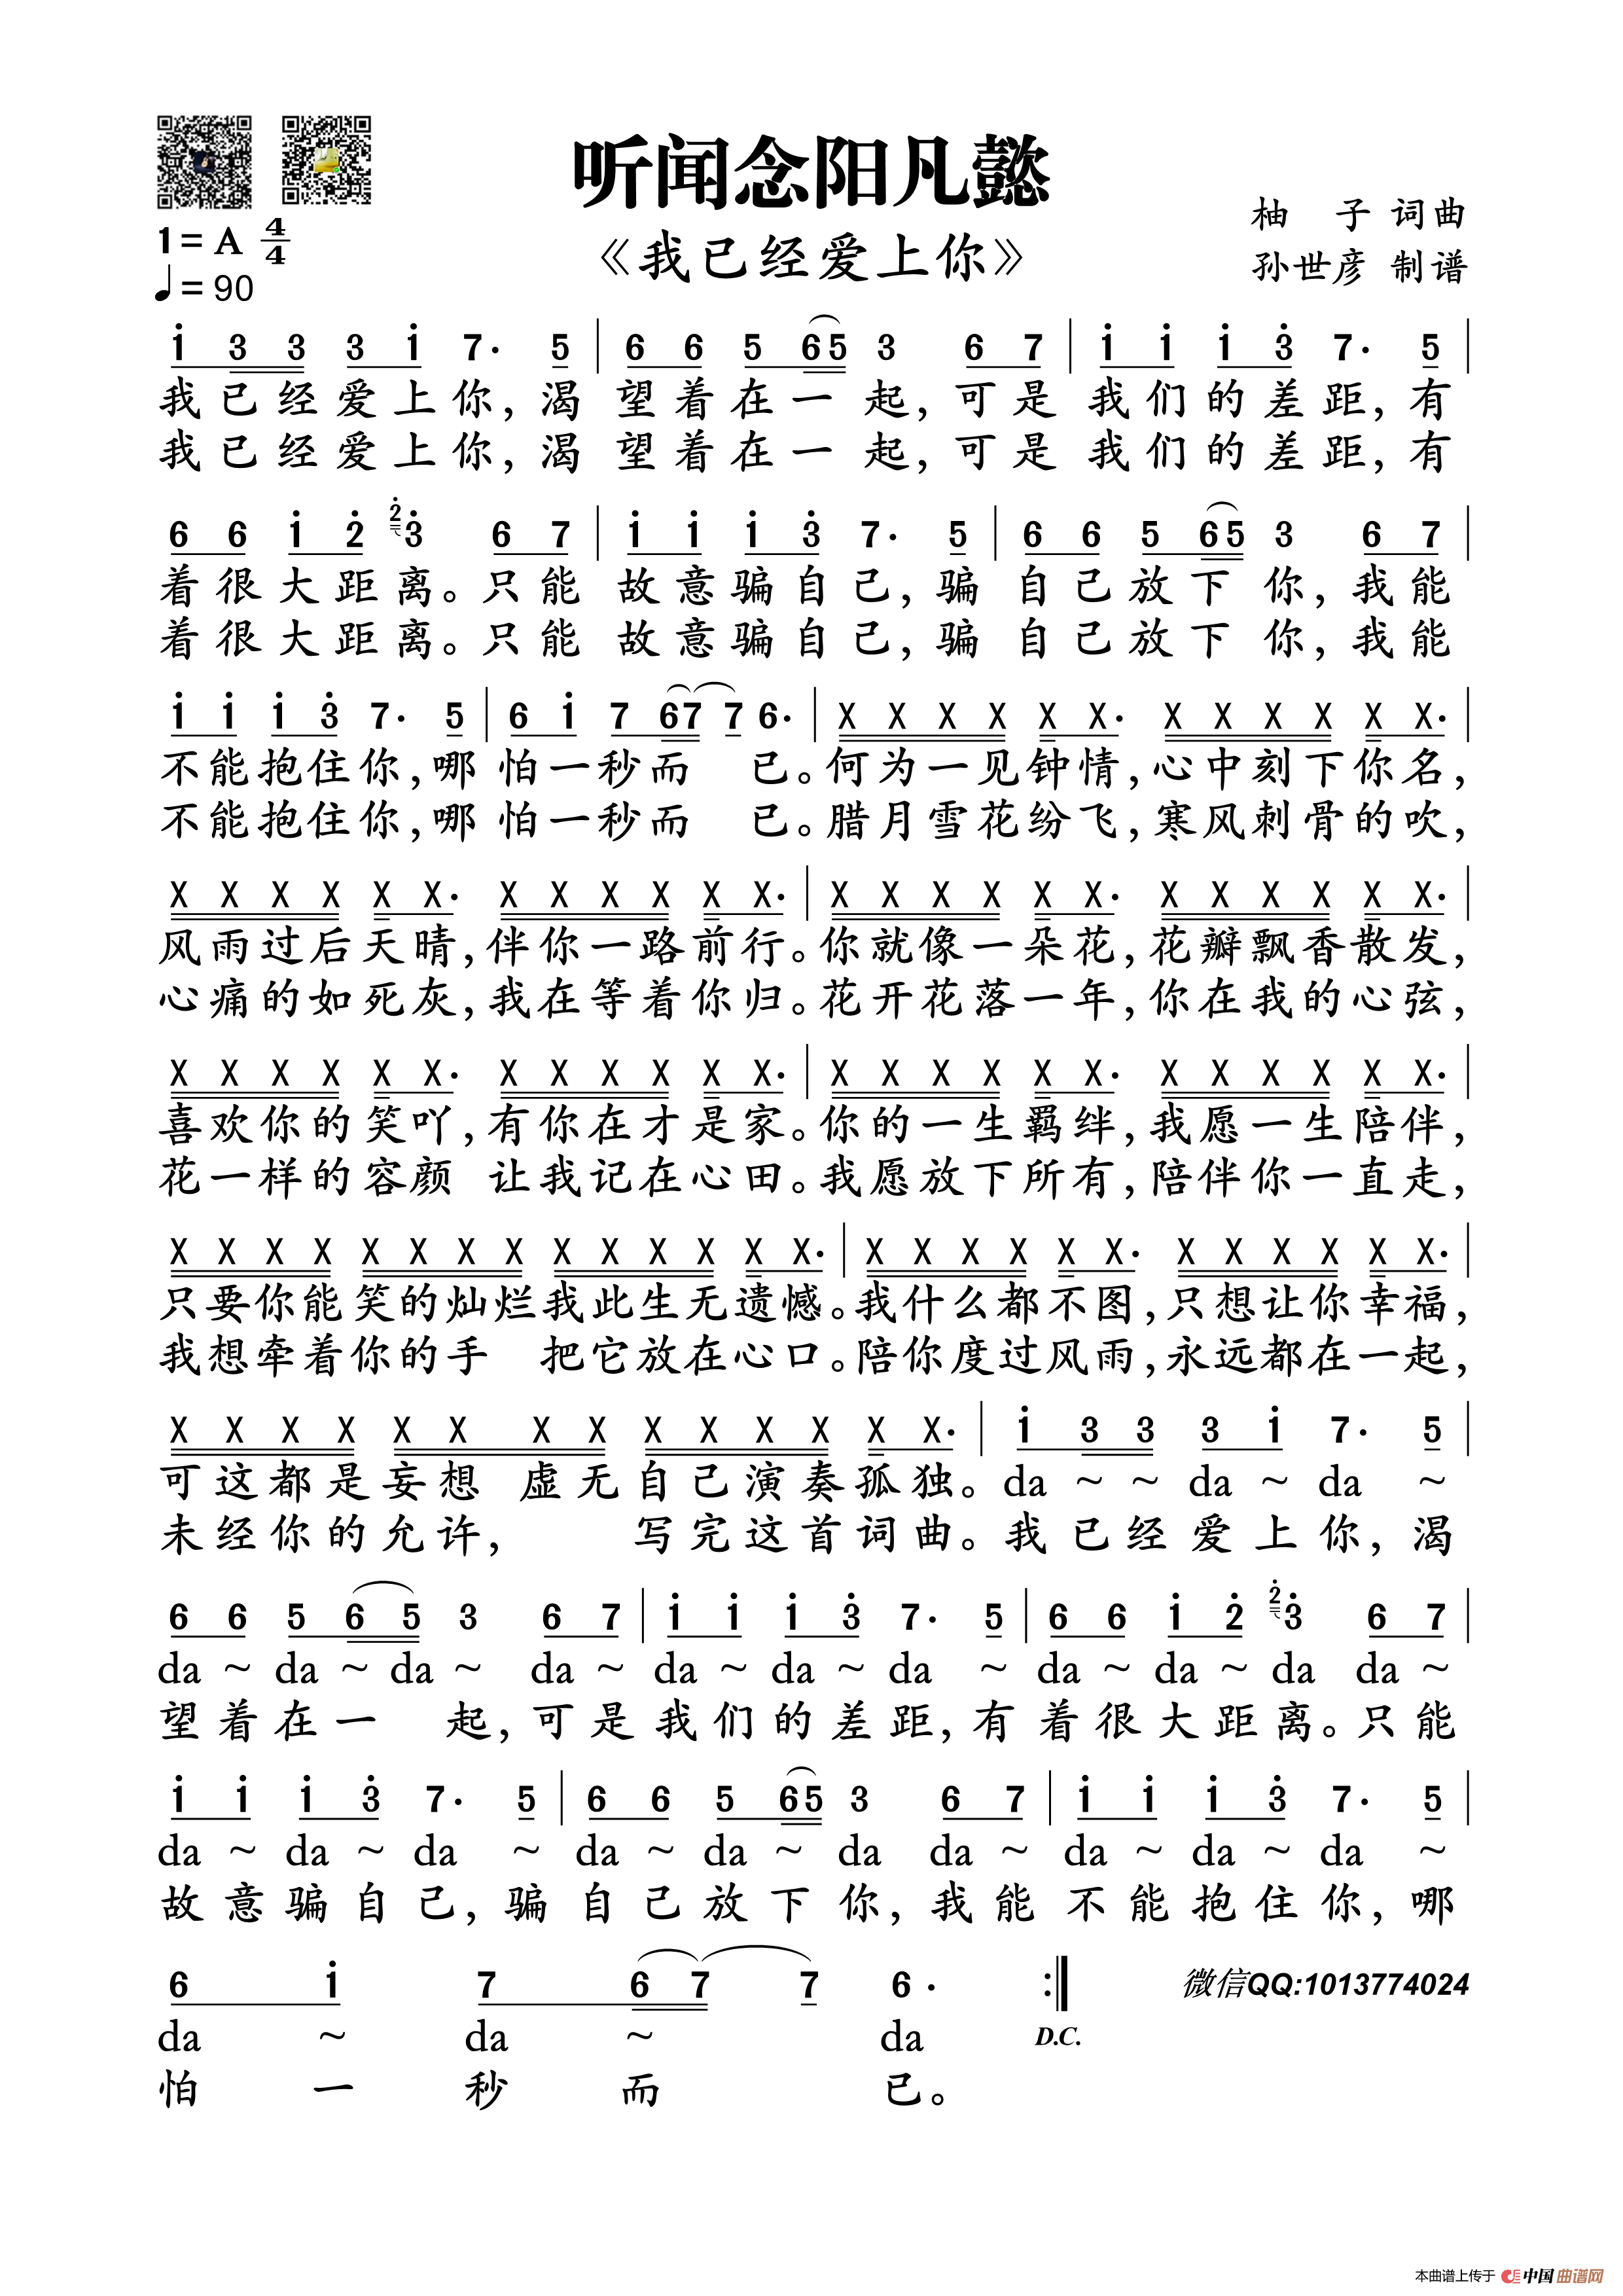 听闻念阳凡懿
柚 子 词曲
1= A 4/4
《我已经爱上你》
孙世彦 制谱
♩= 90
i 3 3 3 i 7· 5 | 6 6 5 6 5 3 6 7 | i i i 3̇ 7· 5 |
我已经爱上你,渴 望着在一起,可是 我们的差距,有
我已经爱上你,渴 望着在一起,可是 我们的差距,有
6 6 i 2̇ 2̇ 3̇ 6 7 | i i i 3̇ 7· 5 | 6 6 5 6 5 3 6 7 |
着很大距离。只能 故意骗自己,骗 自己放下你,我能
着很大距离。只能 故意骗自己,骗 自己放下你,我能
i i i 3̇ 7· 5 | 6 i 7 6 7 7 6· | X X X X X X· X X X X X X· |
不能抱住你,哪 怕一秒而 已。何为一见钟情,心中刻下你名,
不能抱住你,哪 怕一秒而 已。腊月雪花纷飞,寒风刺骨的吹,
X X X X X X· X X X X X X· | X X X X X X· X X X X X X· |
风雨过后天晴,伴你一路前行。你就像一朵花,花瓣飘香散发,
心痛的如死灰,我在等着你归。花开花落一年,你在我的心弦,
X X X X X X· X X X X X X· | X X X X X X· X X X X X X· |
喜欢你的笑吖,有你在才是家。你的一生羁绊,我愿一生陪伴,
花一样的容颜 让我记在心田。我愿放下所有,陪伴你一直走,
X X X X X X X X X X X X X X· | X X X X X X· X X X X X X· |
只要你能笑的灿烂我此生无遗憾。我什么都不图,只想让你幸福,
我想牵着你的手 把它放在心口。陪你度过风雨,永远都在一起,
X X X X X X X X X X X X X X· | i 3 3 3 i 7· 5 |
可这都是妄想 虚无自己演奏孤独。da ~ ~ da ~ da ~
未经你的允许, 写完这首词曲。我已经爱上你,渴
6 6 5 6 5 3 6 7 | i i i 3̇ 7· 5 | 6 6 i 2̇ 2̇ 3̇ 6 7 |
da ~ da ~ da ~ da ~ da ~ da ~ da ~ da ~ da ~ da da ~
望着在一 起,可是我们的差距,有着很大距离。只能
i i i 3̇ 7· 5 | 6 6 5 6 5 3 6 7 | i i i 3̇ 7· 5 |
da ~ da ~ da ~ da ~ da ~ da da ~ da ~ da ~ da ~
故意骗自己,骗 自己放下你,我能不能抱住你,哪
6 i 7 6 7 7 6· :|
微信QQ:1013774024
da ~ da ~ da D.C.
怕一秒而 已。
本曲谱上传于 中国曲谱网